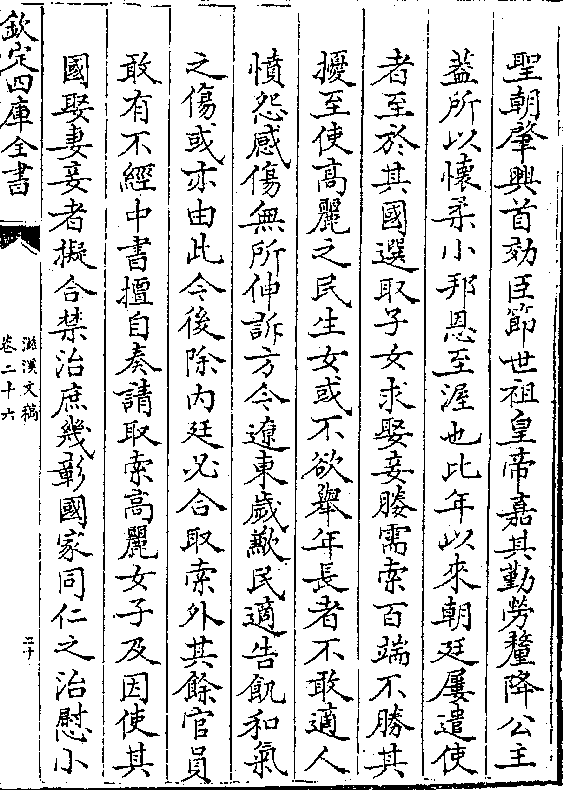 聖朝肇興首効臣節世祖皇帝嘉其勤勞釐降公主
葢所以懷柔小邦恩至渥也比年以來朝廷屢遣使
者至於其國選取子女求娶妾媵需索百端不勝其
擾至使高麗之民生女或不欲舉年長者不敢適人
憤怨感傷無所伸訴方今遼東歲歉民適告飢和氣
之傷或亦由此今後除内廷必合取索外其餘官員
敢有不經中書擅自奏請取索高麗女子及因使其
國娶妻妾者擬合禁治庶幾彰國家同仁之治慰小
欽定四庫全書
滋溪文稿
卷二十六
二十